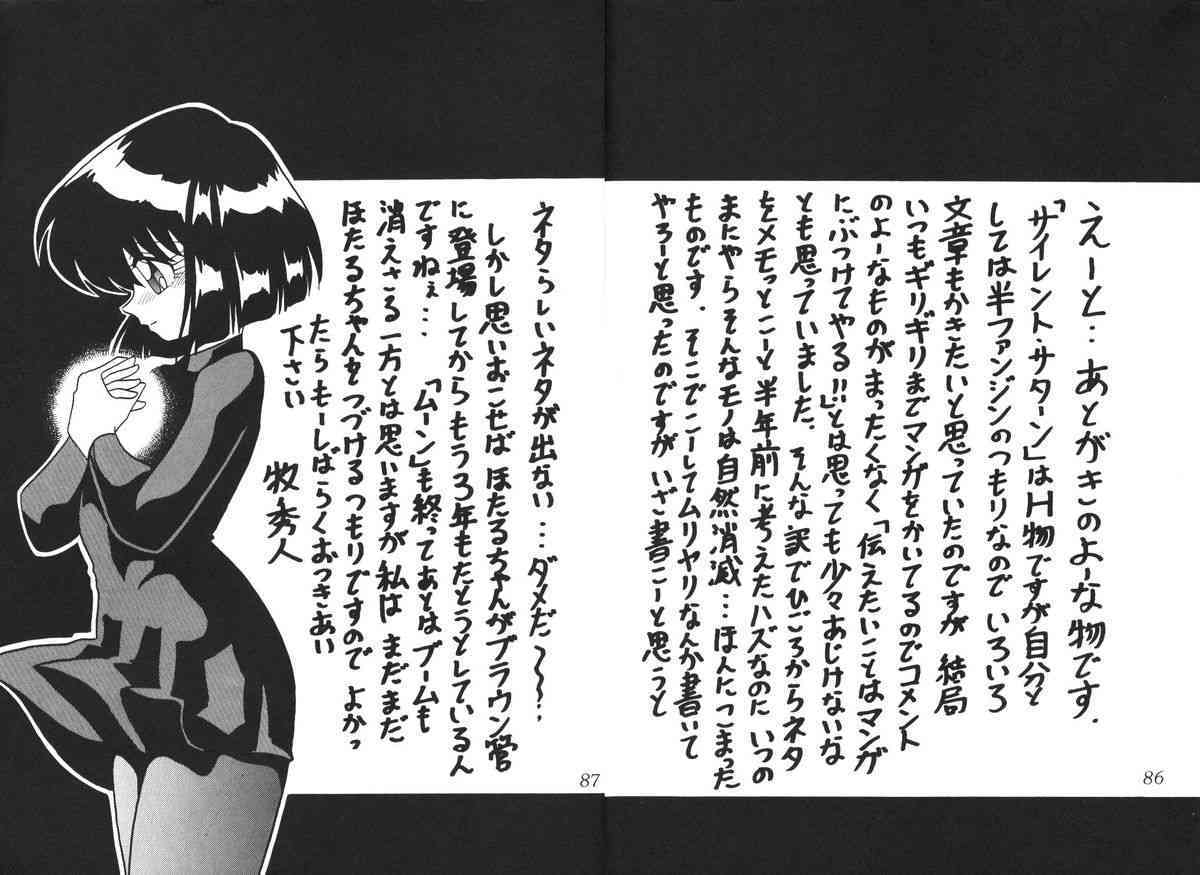 えーと‥あとがきのよーな物です.
「サイレント・サターン」はH物ですが自分と
しては半ファンジンのつもりなので いろいろ
文章もかきたいと思っていたのですが 結局
いつもギリギリまでマンガをかいてるのでコメント
のよーなものがまったくなく「伝えたいことはマンガ
にぶつけてやる!!」とは思っても少々あじけないな
とも思っていました. そんな訳でひごろからネタ
をメモっとこーと半年前に考えたハズなのに いつの
まにやらそんなモノは自然消滅…ほんにこまった
ものです. そこでこーしてムリヤリなんか書いて
やろーと思ったのですが いざ書こーと思うと
86
ネタらしいネタが出ない…ダメだ〜〜.
しかし思いおこせば ほたるちゃんがブラウン管
に登場してからもう3年もたとうとしているん
ですねぇ… 「ムーン」も終ってあとはブームも
消えさる一方とは思いますが 私は まだまだ
ほたるちゃんをつづけるつもりですので よかっ
たらもーしばらくおつきあい
下さい
牧秀人
87